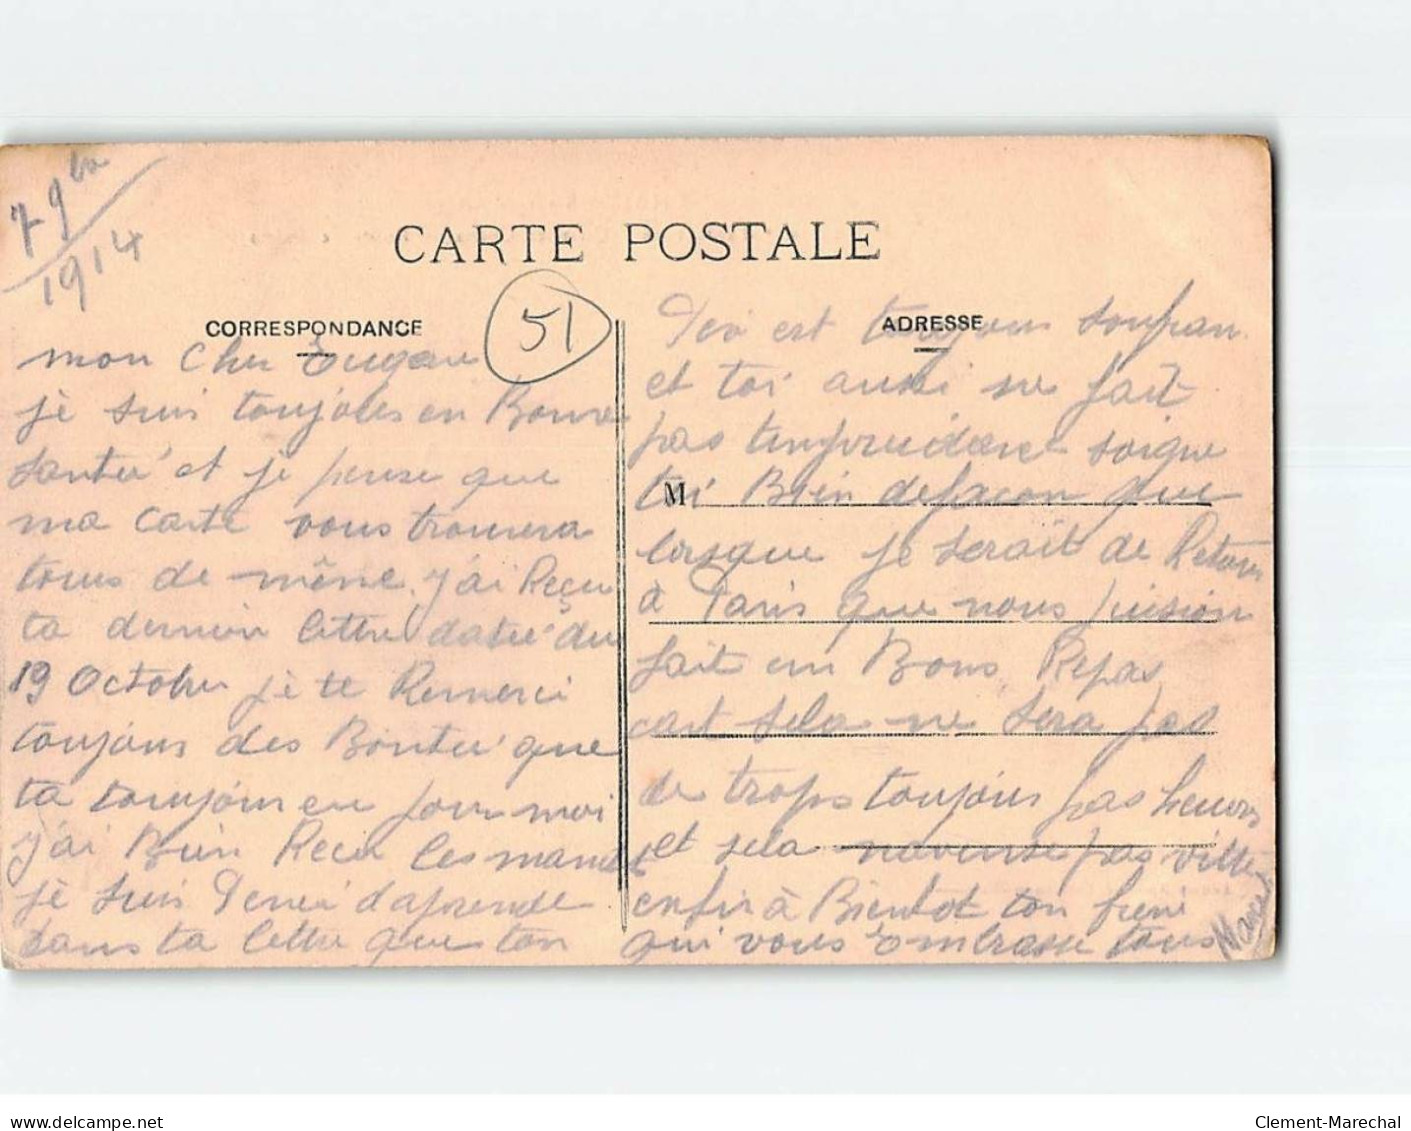 7 9bre
1914
CARTE POSTALE
CORRESPONDANCE
51
ADRESSE
mon Cher Eugene
jè suis toujours en Bonne
santée et je pense que
ma carte vous trouvera
tous de même. j'ai Reçu
ta dernière lettre datée du
19 Octobre jè te Remerci
toujours des Bontée que
ta toujours eu pour moi
j'ai Bien Recu les
jè suis d'aprende
dans ta lettre que ton
est toujours
et toi aussi ne fait
pas soigne
toi Bien defacon que
M
lorsque je serait de Retour
à Paris que nous
fait un Bons Repas
cart sela ne sera pas
de trops toujours pas
et sela pas vitte
enfin à Bientot ton frere
qui vous Embrasse tous
Marcel
www.delcampe.net
Clement-Marechal